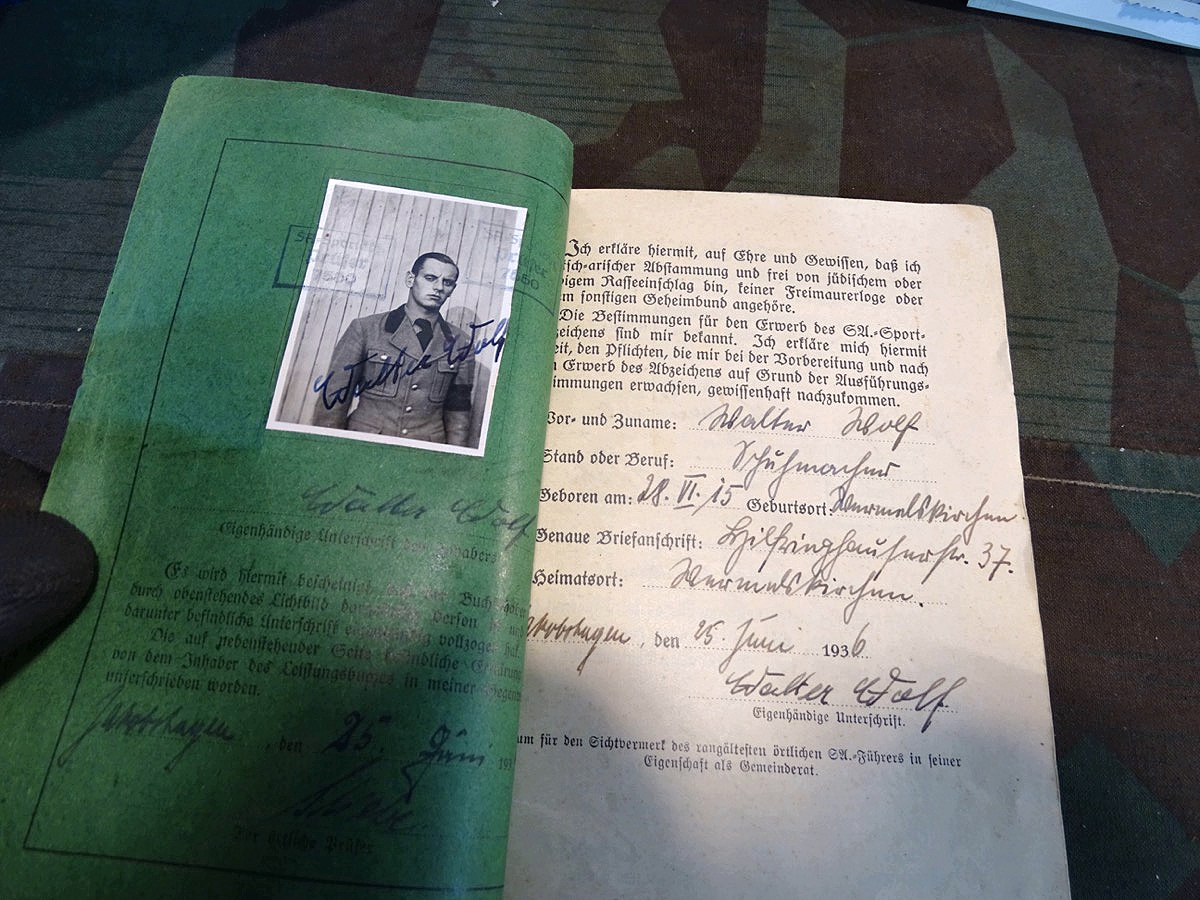 Walter Wolf
Walter Wolf
Eigenhändige Unterschrift des Inhabers
Es wird hiermit bescheinigt, der Buch
durch obenstehendes Lichtbild Person
darunter befindliche Unterschrift eigenhändig vollzogen hat.
Die auf nebenstehender Seite befindliche Erklärung
von dem Inhaber des Leistungsbuches in meiner Gegen
unterschrieben worden.
, den 25. Juni 193
Der örtliche Prüfer
Ich erkläre hiermit, auf Ehre und Gewissen, daß ich
isch-arischer Abstammung und frei von jüdischem oder
bigem Rasseeinschlag bin, keiner Freimaurerloge oder
m sonstigen Geheimbund angehöre.
Die Bestimmungen für den Erwerb des SA.-Sport-
zeichens sind mir bekannt. Ich erkläre mich hiermit
eit, den Pflichten, die mir bei der Vorbereitung und nach
n Erwerb des Abzeichens auf Grund der Ausführungs-
immungen erwachsen, gewissenhaft nachzukommen.
Vor- und Zuname: Walter Wolf
Stand oder Beruf: Schuhmacher
Geboren am: 28. VI. 15 Geburtsort: Wermelskirchen
Genaue Briefanschrift: Hilfringhauserstr. 37.
Heimatsort: Wermelskirchen.
, den 25. Juni 1936
Walter Wolf
Eigenhändige Unterschrift.
um für den Sichtvermerk des rangältesten örtlichen SA.-Führers in seiner
Eigenschaft als Gemeinderat.